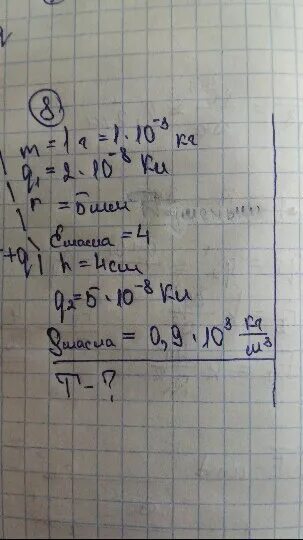 8.
m = 1 г = 1 · 10⁻³ кг
q₁ = 2 · 10⁻⁸ Кл
r = 5 мм
εмасла = 4
+q h = 4 см
q₂ = 5 · 10⁻⁸ Кл
ρмасла = 0,9 · 10³ кг/м³
T - ?